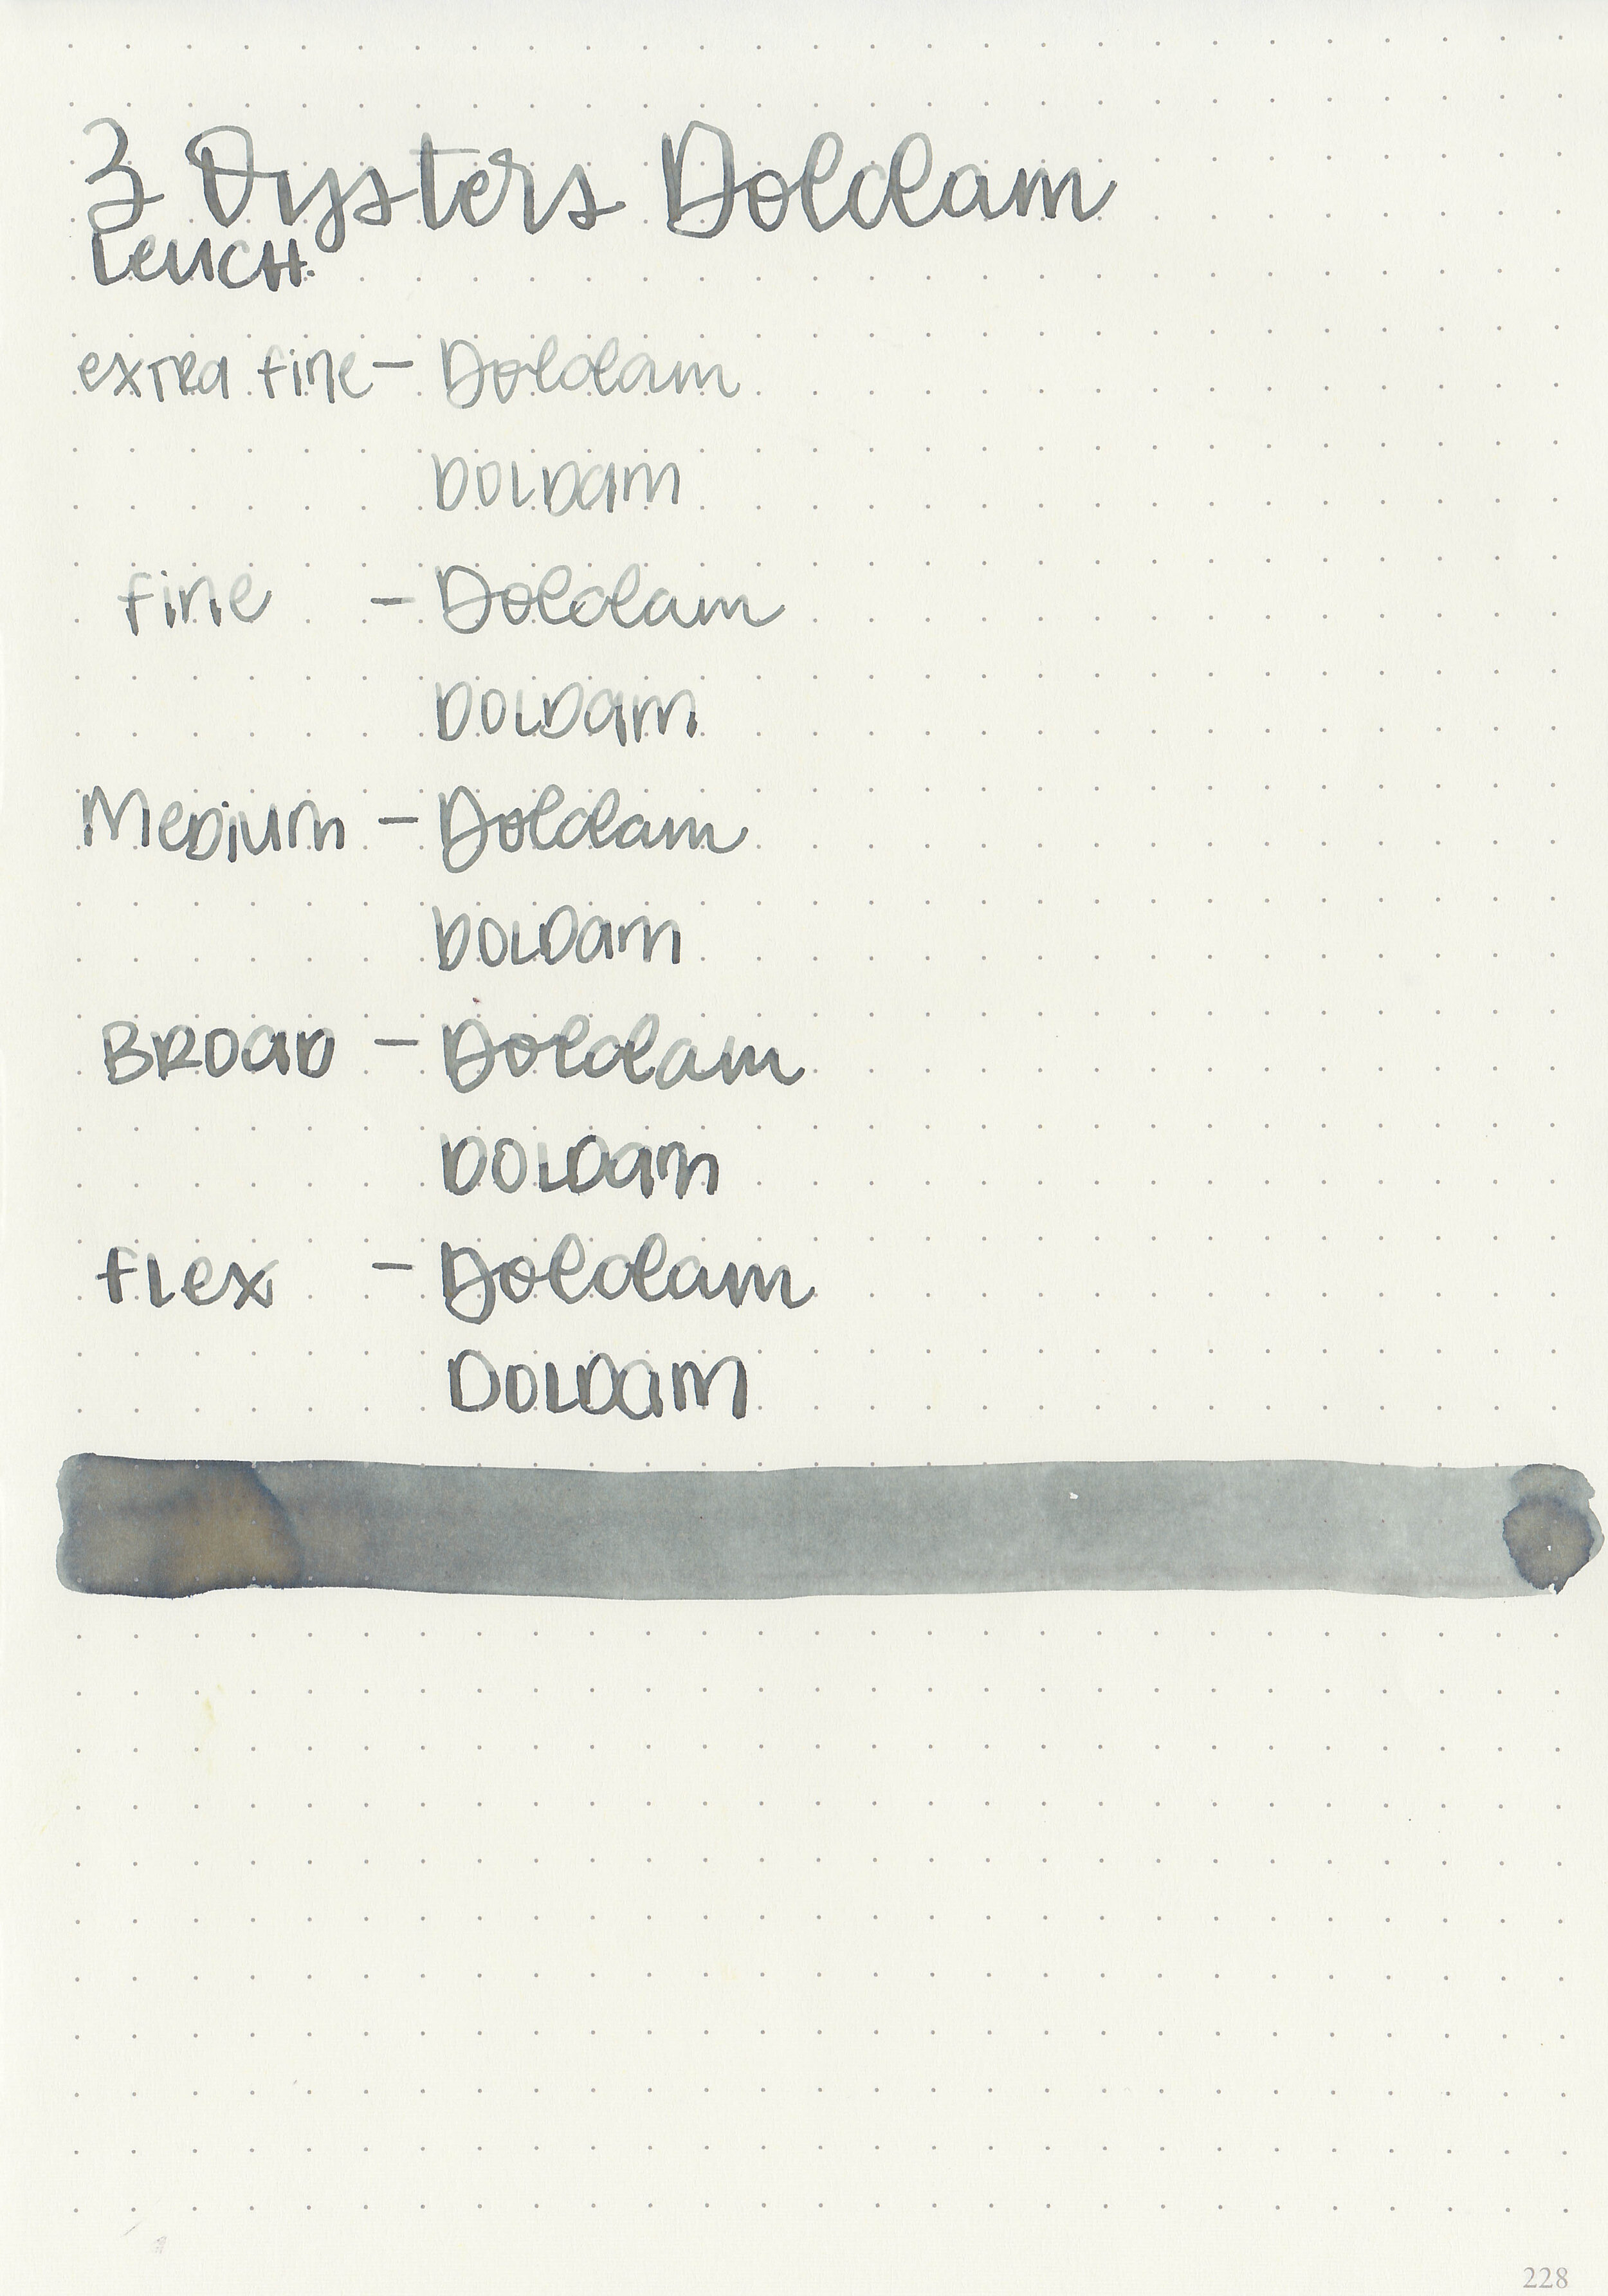 3 Oysters Doldam
Leuch.
extra fine - Doldam
Doldam
fine - Doldam
Doldam
Medium - Doldam
Doldam
Broad - Doldam
Doldam
flex - Doldam
Doldam
228